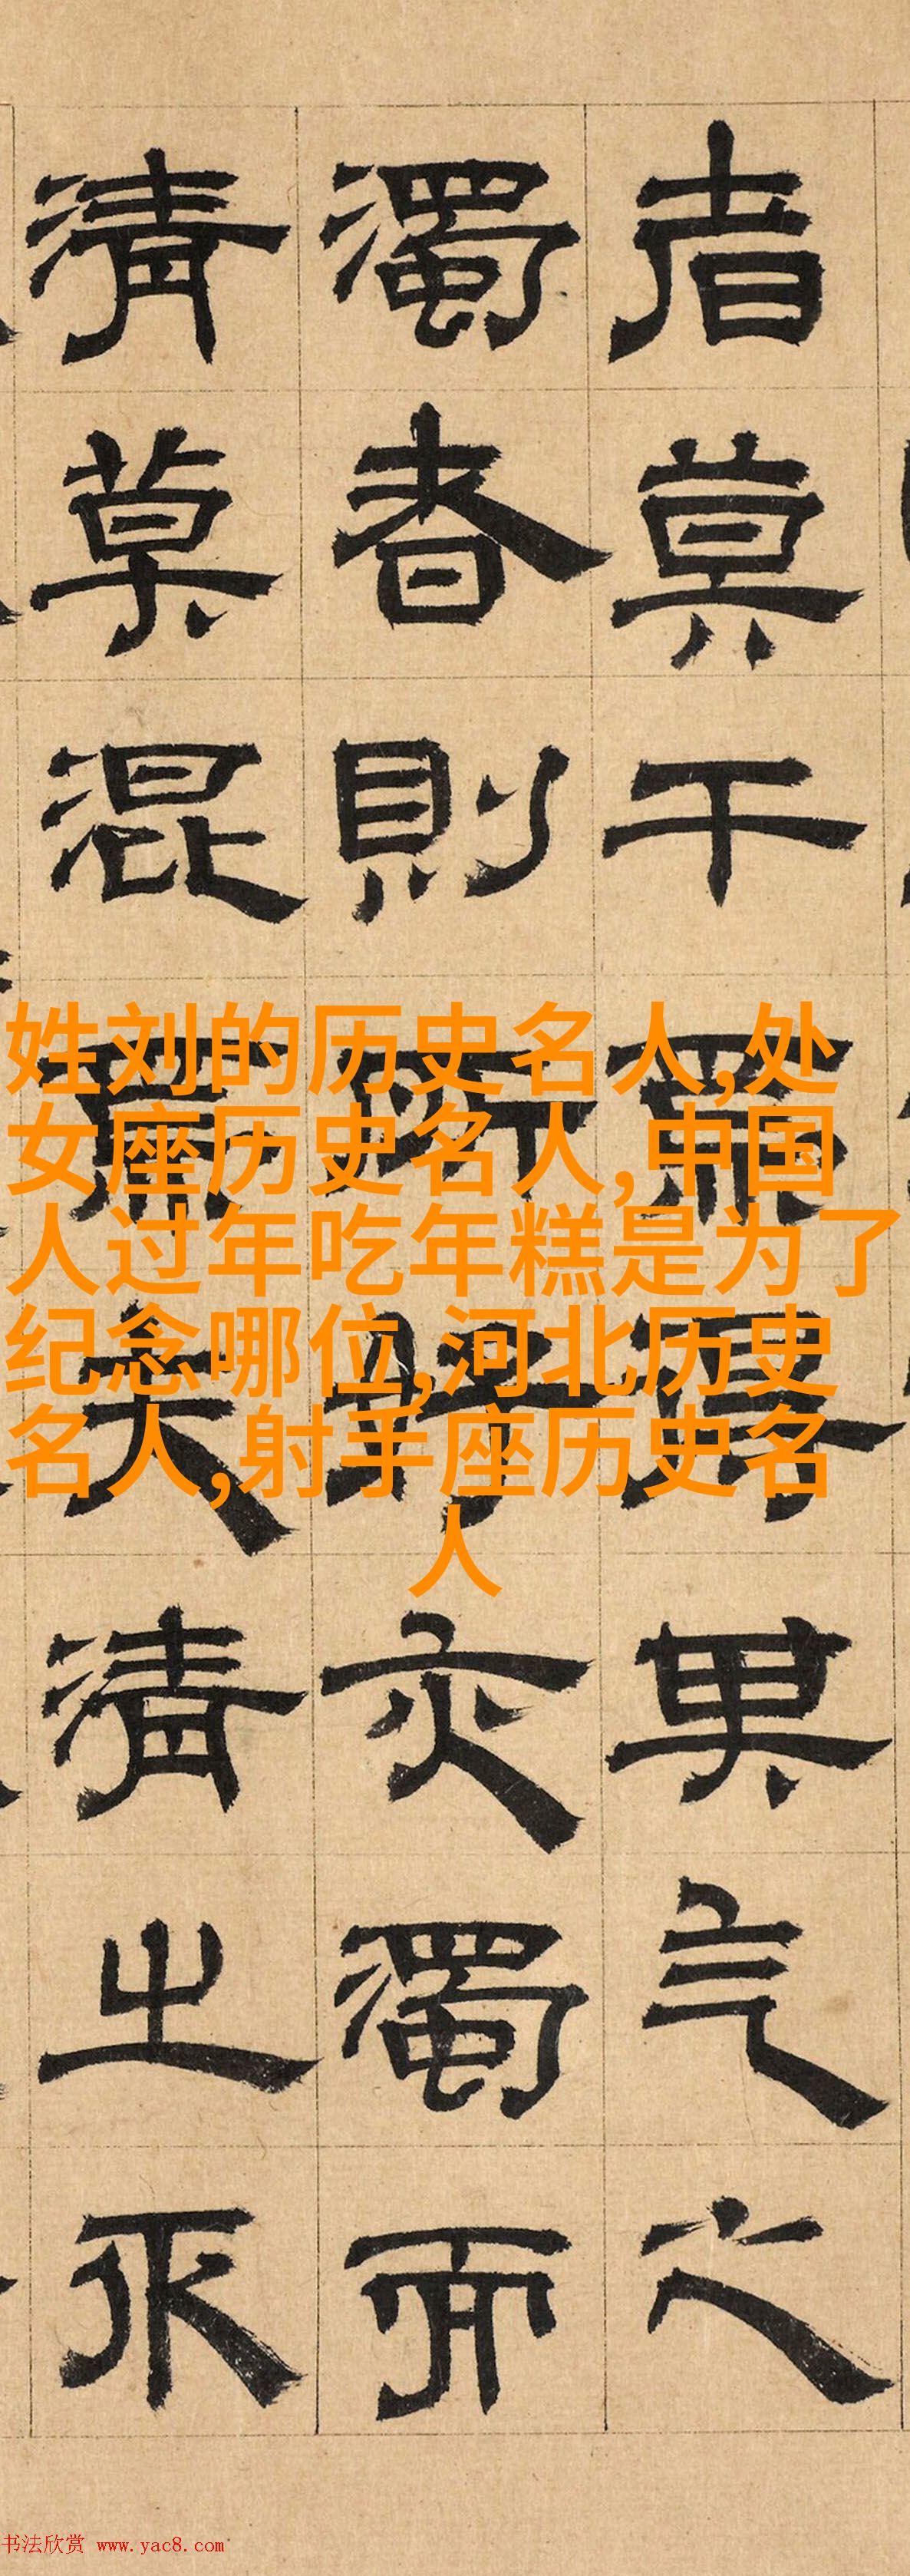 者莫干其气之
濁者則所好亦濁而
清莫混焉矣清之
姓刘的历史名人,处
女座历史名人,中国
人过年吃年糕是为了
纪念哪位,河北历史
名人,射手座历史名
人
书法欣赏 www.yac8.com